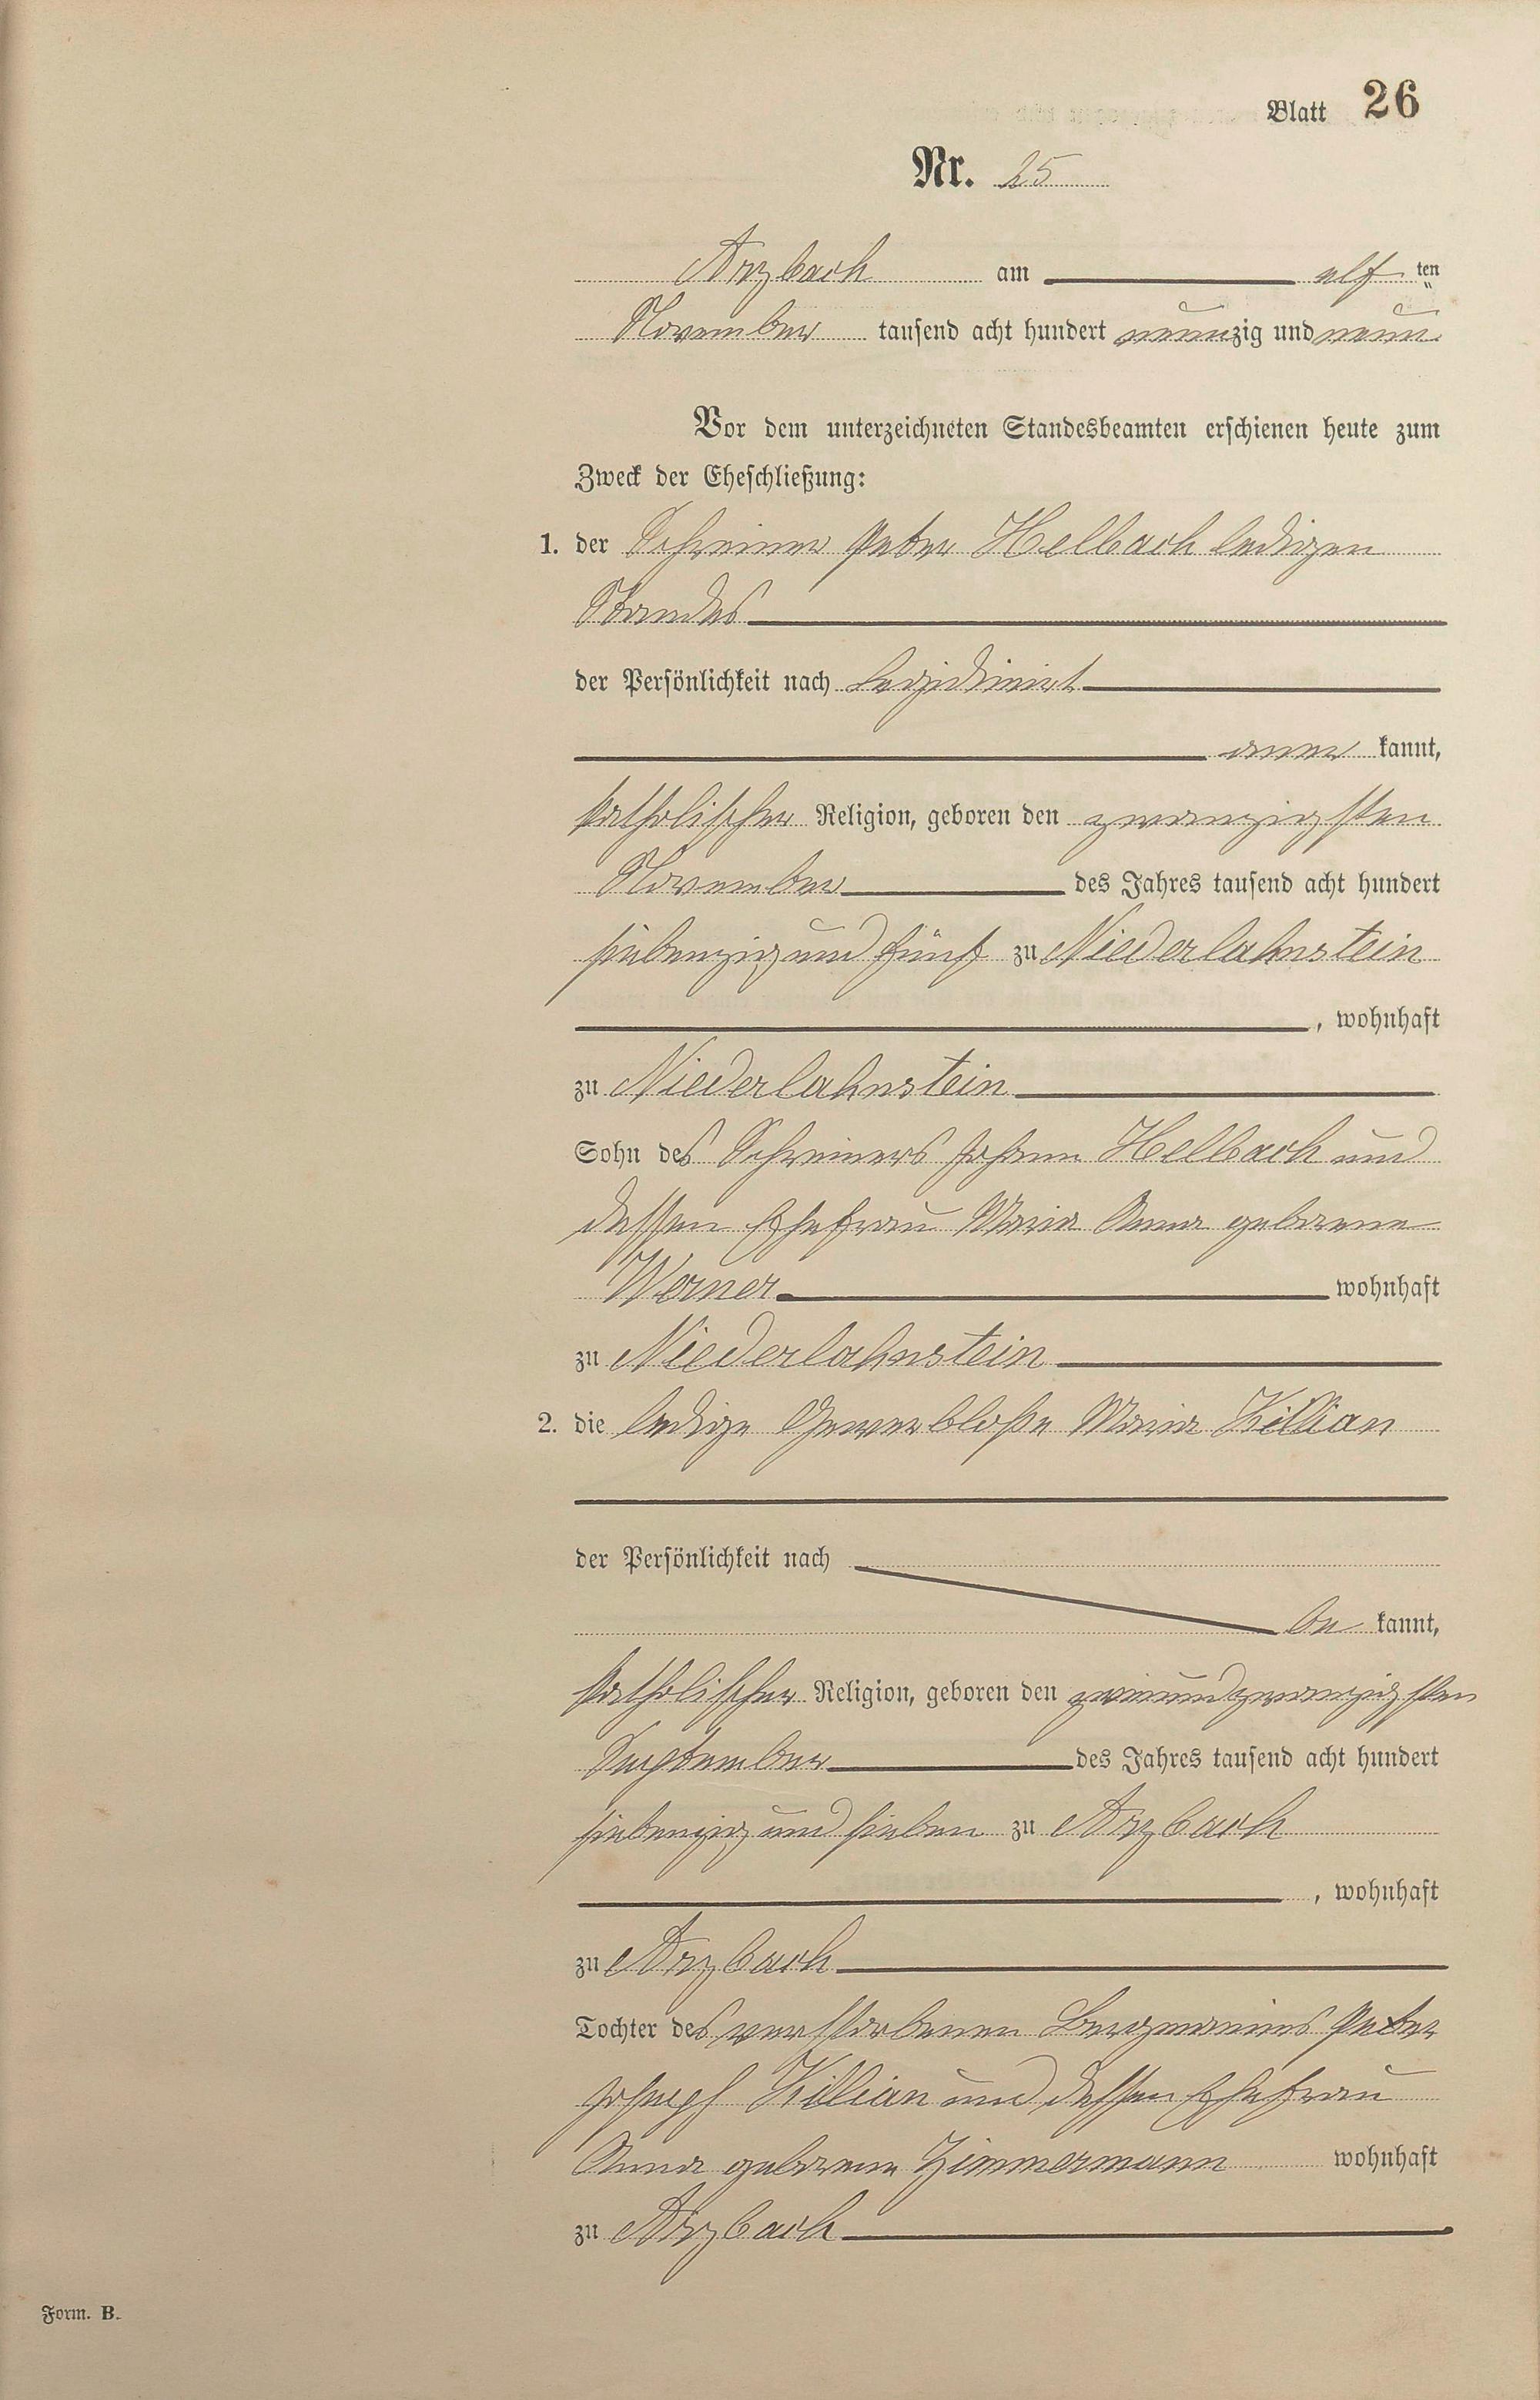 Blatt 26
Nr. 25
Arzbach am elf ten
November tausend acht hundert neunzig und neun
Vor dem unterzeichneten Standesbeamten erschienen heute zum
Zweck der Eheschließung:
1. der Schreiner Peter Helbach ledigen
Standes
der Persönlichkeit nach Legidimirt
aner kannt,
katholischer Religion, geboren den zwanzigsten
November des Jahres tausend acht hundert
siebenzig und fünf zu Niederlahnstein
, wohnhaft
zu Niederlahnstein
Sohn des Schreiners Johann Helbach und
dessen Ehefrau Maria Anna geborene
Werner wohnhaft
zu Niederlahnstein
2. die ledige Gewerbloße Maria Killian
der Persönlichkeit nach
be kannt,
katholischer Religion, geboren den zweiundzwanzigsten
September des Jahres tausend acht hundert
siebenzig und sieben zu Arzbach
, wohnhaft
zu Arzbach
Tochter des verstorbenen Bergmannes Peter
Joseph Killian und dessen Ehefrau
Anna geborene Zimmermann wohnhaft
zu Arzbach
Form. B.